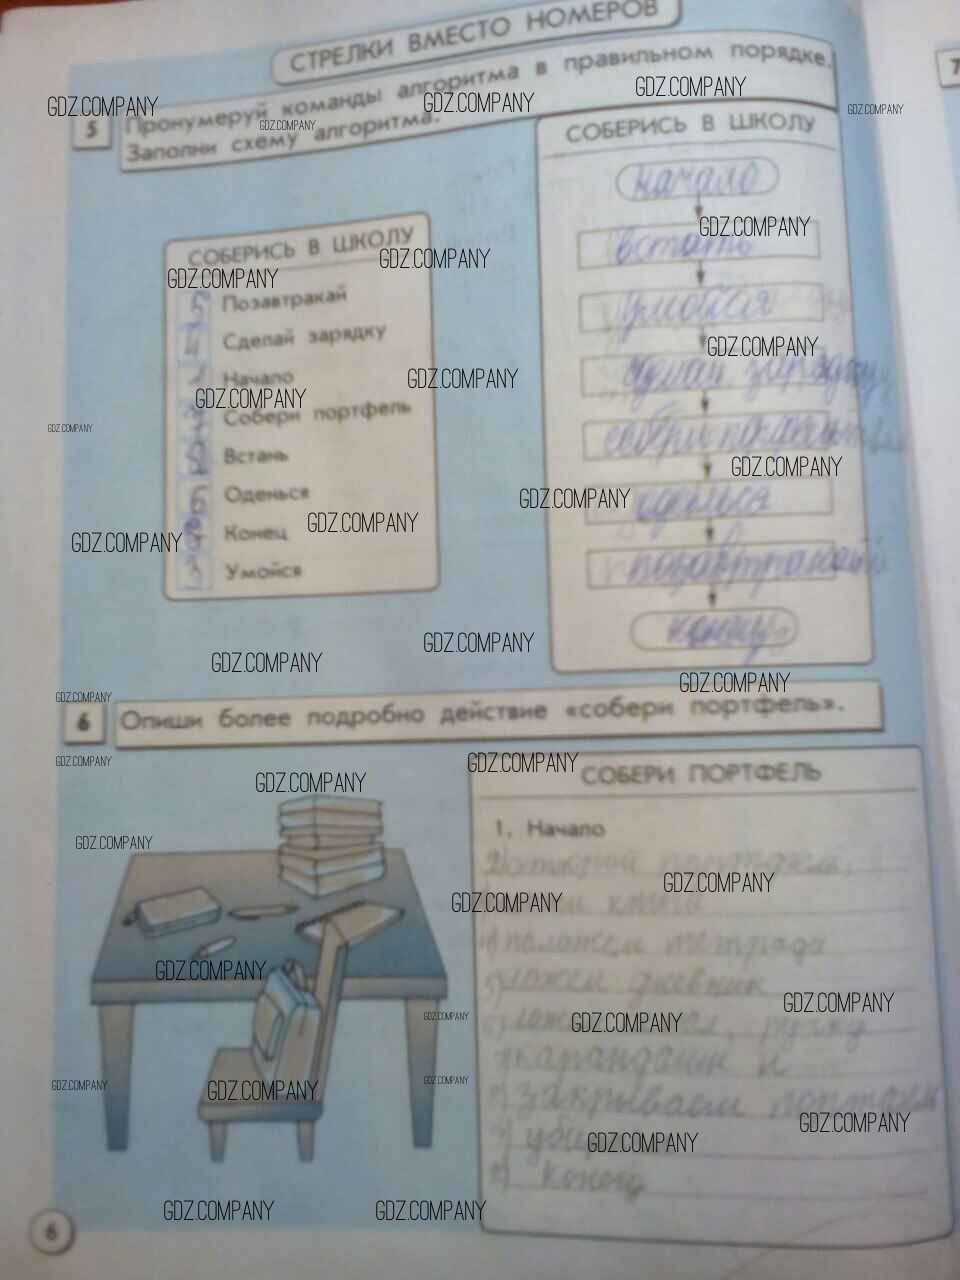 СТРЕЛКИ ВМЕСТО НОМЕРОВ
5 Пронумеруй команды алгоритма в правильном порядке.
Заполни схему алгоритма.
СОБЕРИСЬ В ШКОЛУ
Позавтракай
Сделай зарядку
Начало
Собери портфель
Встань
Оденься
Конец
Умойся
СОБЕРИСЬ В ШКОЛУ
начало
встань
умойся
сделай зарядку
собери портфель
оденься
позавтракай
конец
6 Опиши более подробно действие «собери портфель».
СОБЕРИ ПОРТФЕЛЬ
1. Начало
открой портфель
книги
положи тетради
ложем дневник
ручку
карандаши и
закрываем портфель
Конец
6
7
GDZ.COMPANY